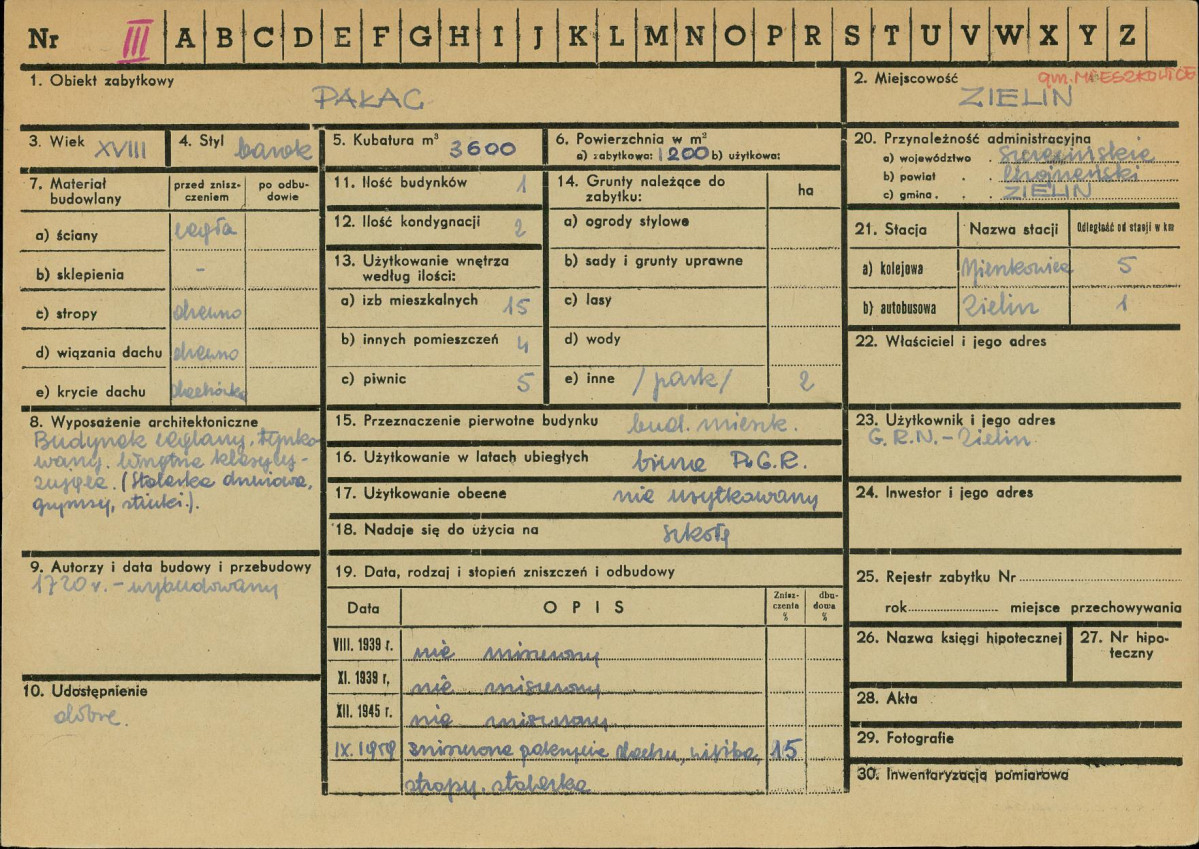 Nr III A B C D E F G H I J K L M N O P R S T U V W X Y Z
1. Obiekt zabytkowy
PAŁAC
2. Miejscowość gm. MIESZKOWICE
ZIELIN
3. Wiek XVIII
4. Styl barok
5. Kubatura m³ 3600
6. Powierzchnia w m²
a) zabytkowa: 1200 b) użytkowa:
7. Materiał budowlany
przed zniszczeniem
po odbudowie
a) ściany cegła
b) sklepienia -
c) stropy drewno
d) wiązania dachu drewno
e) krycie dachu dachówka
8. Wyposażenie architektoniczne
Budynek ceglany, tynko-
wany. Wnętrze klasycy-
zujące. (Stolarka drzwiowa,
gzymsy, stiuki.).
9. Autorzy i data budowy i przebudowy
1720 r. - wybudowany
10. Udostępnienie
dobre.
11. Ilość budynków 1
12. Ilość kondygnacji 2
13. Użytkowanie wnętrza
według ilości:
a) izb mieszkalnych 15
b) innych pomieszczeń 4
c) piwnic 5
14. Grunty należące do
zabytku:
ha
a) ogrody stylowe
b) sady i grunty uprawne
c) lasy
d) wody
e) inne /park/ 2
15. Przeznaczenie pierwotne budynku bud. mieszk.
16. Użytkowanie w latach ubiegłych biura P.G.R.
17. Użytkowanie obecne nie użytkowany
18. Nadaje się do użycia na szkołę
19. Data, rodzaj i stopień zniszczeń i odbudowy
Data
OPIS
Znisz-
czenia
%
dbu-
dowa
%
VIII. 1939 r. nie zniszczony
XI. 1939 r. nie zniszczony
XII. 1945 r. nie zniszczony
IX. 1959 zniszczone pokrycie dachu, więźba, 15
stropy, stolarka
20. Przynależność administracyjna
a) województwo Szczecińskie
b) powiat Chojeński
c) gmina ZIELIN
21. Stacja
Nazwa stacji
Odległość od stacji w km
a) kolejowa Mieszkowice 5
b) autobusowa Zielin 1
22. Właściciel i jego adres
23. Użytkownik i jego adres
G.R.N. - Zielin
24. Inwestor i jego adres
25. Rejestr zabytku Nr
rok miejsce przechowywania
26. Nazwa księgi hipotecznej
27. Nr hipo-
teczny
28. Akta
29. Fotografie
30. Inwentaryzacja pomiarowa